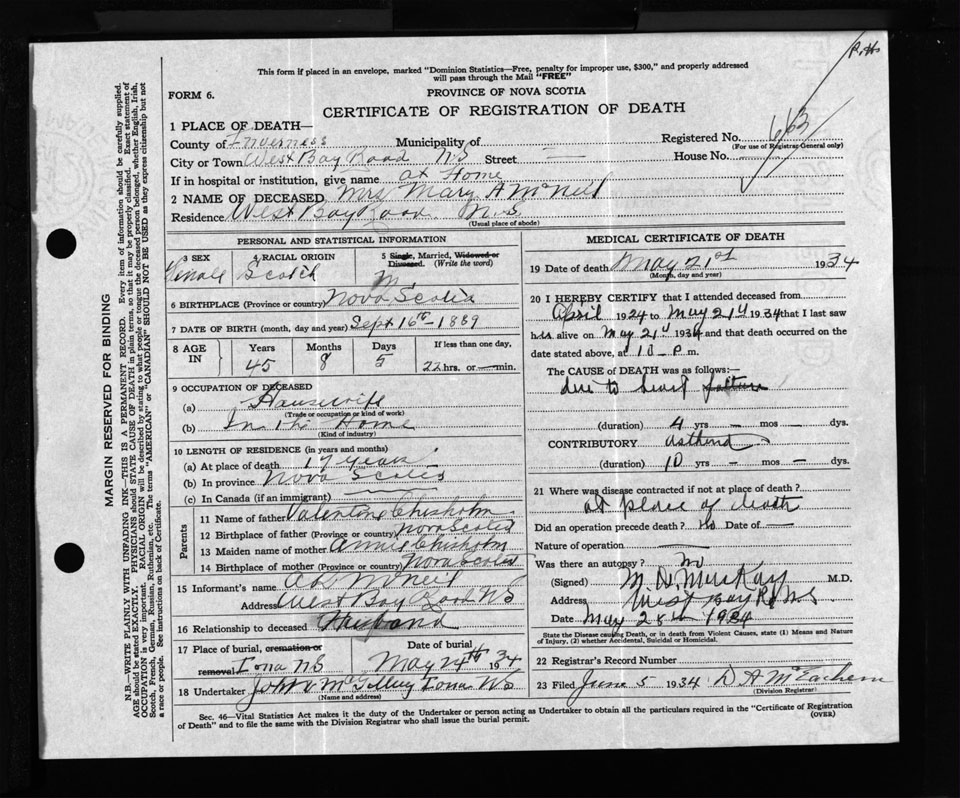 R.H.
This form if placed in an envelope, marked "Dominion Statistics—Free, penalty for improper use, $300," and properly addressed
will pass through the Mail "FREE"
FORM 6.
PROVINCE OF NOVA SCOTIA
CERTIFICATE OF REGISTRATION OF DEATH
1 PLACE OF DEATH—
County of Inverness Municipality of
Registered No. 663
(For use of Registrar General only)
City or Town West Bay Road N.S Street —
House No.
If in hospital or institution, give name at Home
2 NAME OF DECEASED Mrs Mary A McNeil
Residence West Bay Road N.S
(Usual place of abode)
PERSONAL AND STATISTICAL INFORMATION
3 SEX
Female
4 RACIAL ORIGIN
Scotch
5 Single, Married, Widowed or
Divorced. (Write the word)
M
6 BIRTHPLACE (Province or country) Nova Scotia
7 DATE OF BIRTH (month, day and year) Sept 16th - 1889
8 AGE IN
Years Months Days If less than one day,
45 8 5 22 hrs. or — min.
9 OCCUPATION OF DECEASED
(a) Housewife
(Trade or occupation or kind of work)
(b) In the Home
(Kind of industry)
10 LENGTH OF RESIDENCE (in years and months)
(a) At place of death 17 years
(b) In province Nova Scotia
(c) In Canada (if an immigrant)
Parents
11 Name of father Valentine Chisholm
12 Birthplace of father (Province or country) Nova Scotia
13 Maiden name of mother Annie Chisholm
14 Birthplace of mother (Province or country) Nova Scotia
15 Informant's name McNeil
Address West Bay Road NS
16 Relationship to deceased Husband
17 Place of burial, cremation or
removal Iona NS
Date of burial
May 24th 1934
18 Undertaker Iona NS
(Name and address)
MEDICAL CERTIFICATE OF DEATH
19 Date of death May 21st 1934
(Month, day and year)
20 I HEREBY CERTIFY that I attended deceased from
April 1924 to May 21st 1934 that I last saw
her alive on May 21st 1934 and that death occurred on the
date stated above, at 10 - P m.
The CAUSE of DEATH was as follows:—
due to heart failure
(duration) 4 yrs — mos — dys.
CONTRIBUTORY asthma
(duration) 10 yrs — mos — dys.
21 Where was disease contracted if not at place of death?
at place of death
Did an operation precede death? No Date of —
Nature of operation —
Was there an autopsy? no
(Signed) M D McKay M.D.
Address West Bay Rd N.S
Date May 28th 1934
State the Disease causing Death, or in death from Violent Causes, state (1) Means and Nature
of Injury, (2) whether Accidental, Suicidal or Homicidal.
22 Registrar's Record Number
23 Filed June 5 1934 D A McEachern
(Division Registrar)
Sec. 46—Vital Statistics Act makes it the duty of the Undertaker or person acting as Undertaker to obtain all the particulars required in the "Certificate of Registration
of Death" and to file the same with the Division Registrar who shall issue the burial permit.
(OVER)
MARGIN RESERVED FOR BINDING
N.B.—WRITE PLAINLY WITH UNFADING INK—THIS IS A PERMANENT RECORD. Every item of information should be carefully supplied.
AGE should be stated EXACTLY. PHYSICIANS should STATE CAUSE OF DEATH in plain terms, so that it may be properly classified. Exact statement of
OCCUPATION is very important. RACIAL ORIGIN will be described by stating to what people or tongue the deceased person belonged, whether English, Irish,
Scotch, French, German, Russian, Ruthenian, etc. The terms "AMERICAN" or "CANADIAN" SHOULD NOT BE USED as they express citizenship but not
a race or people. See instructions on back of Certificate.